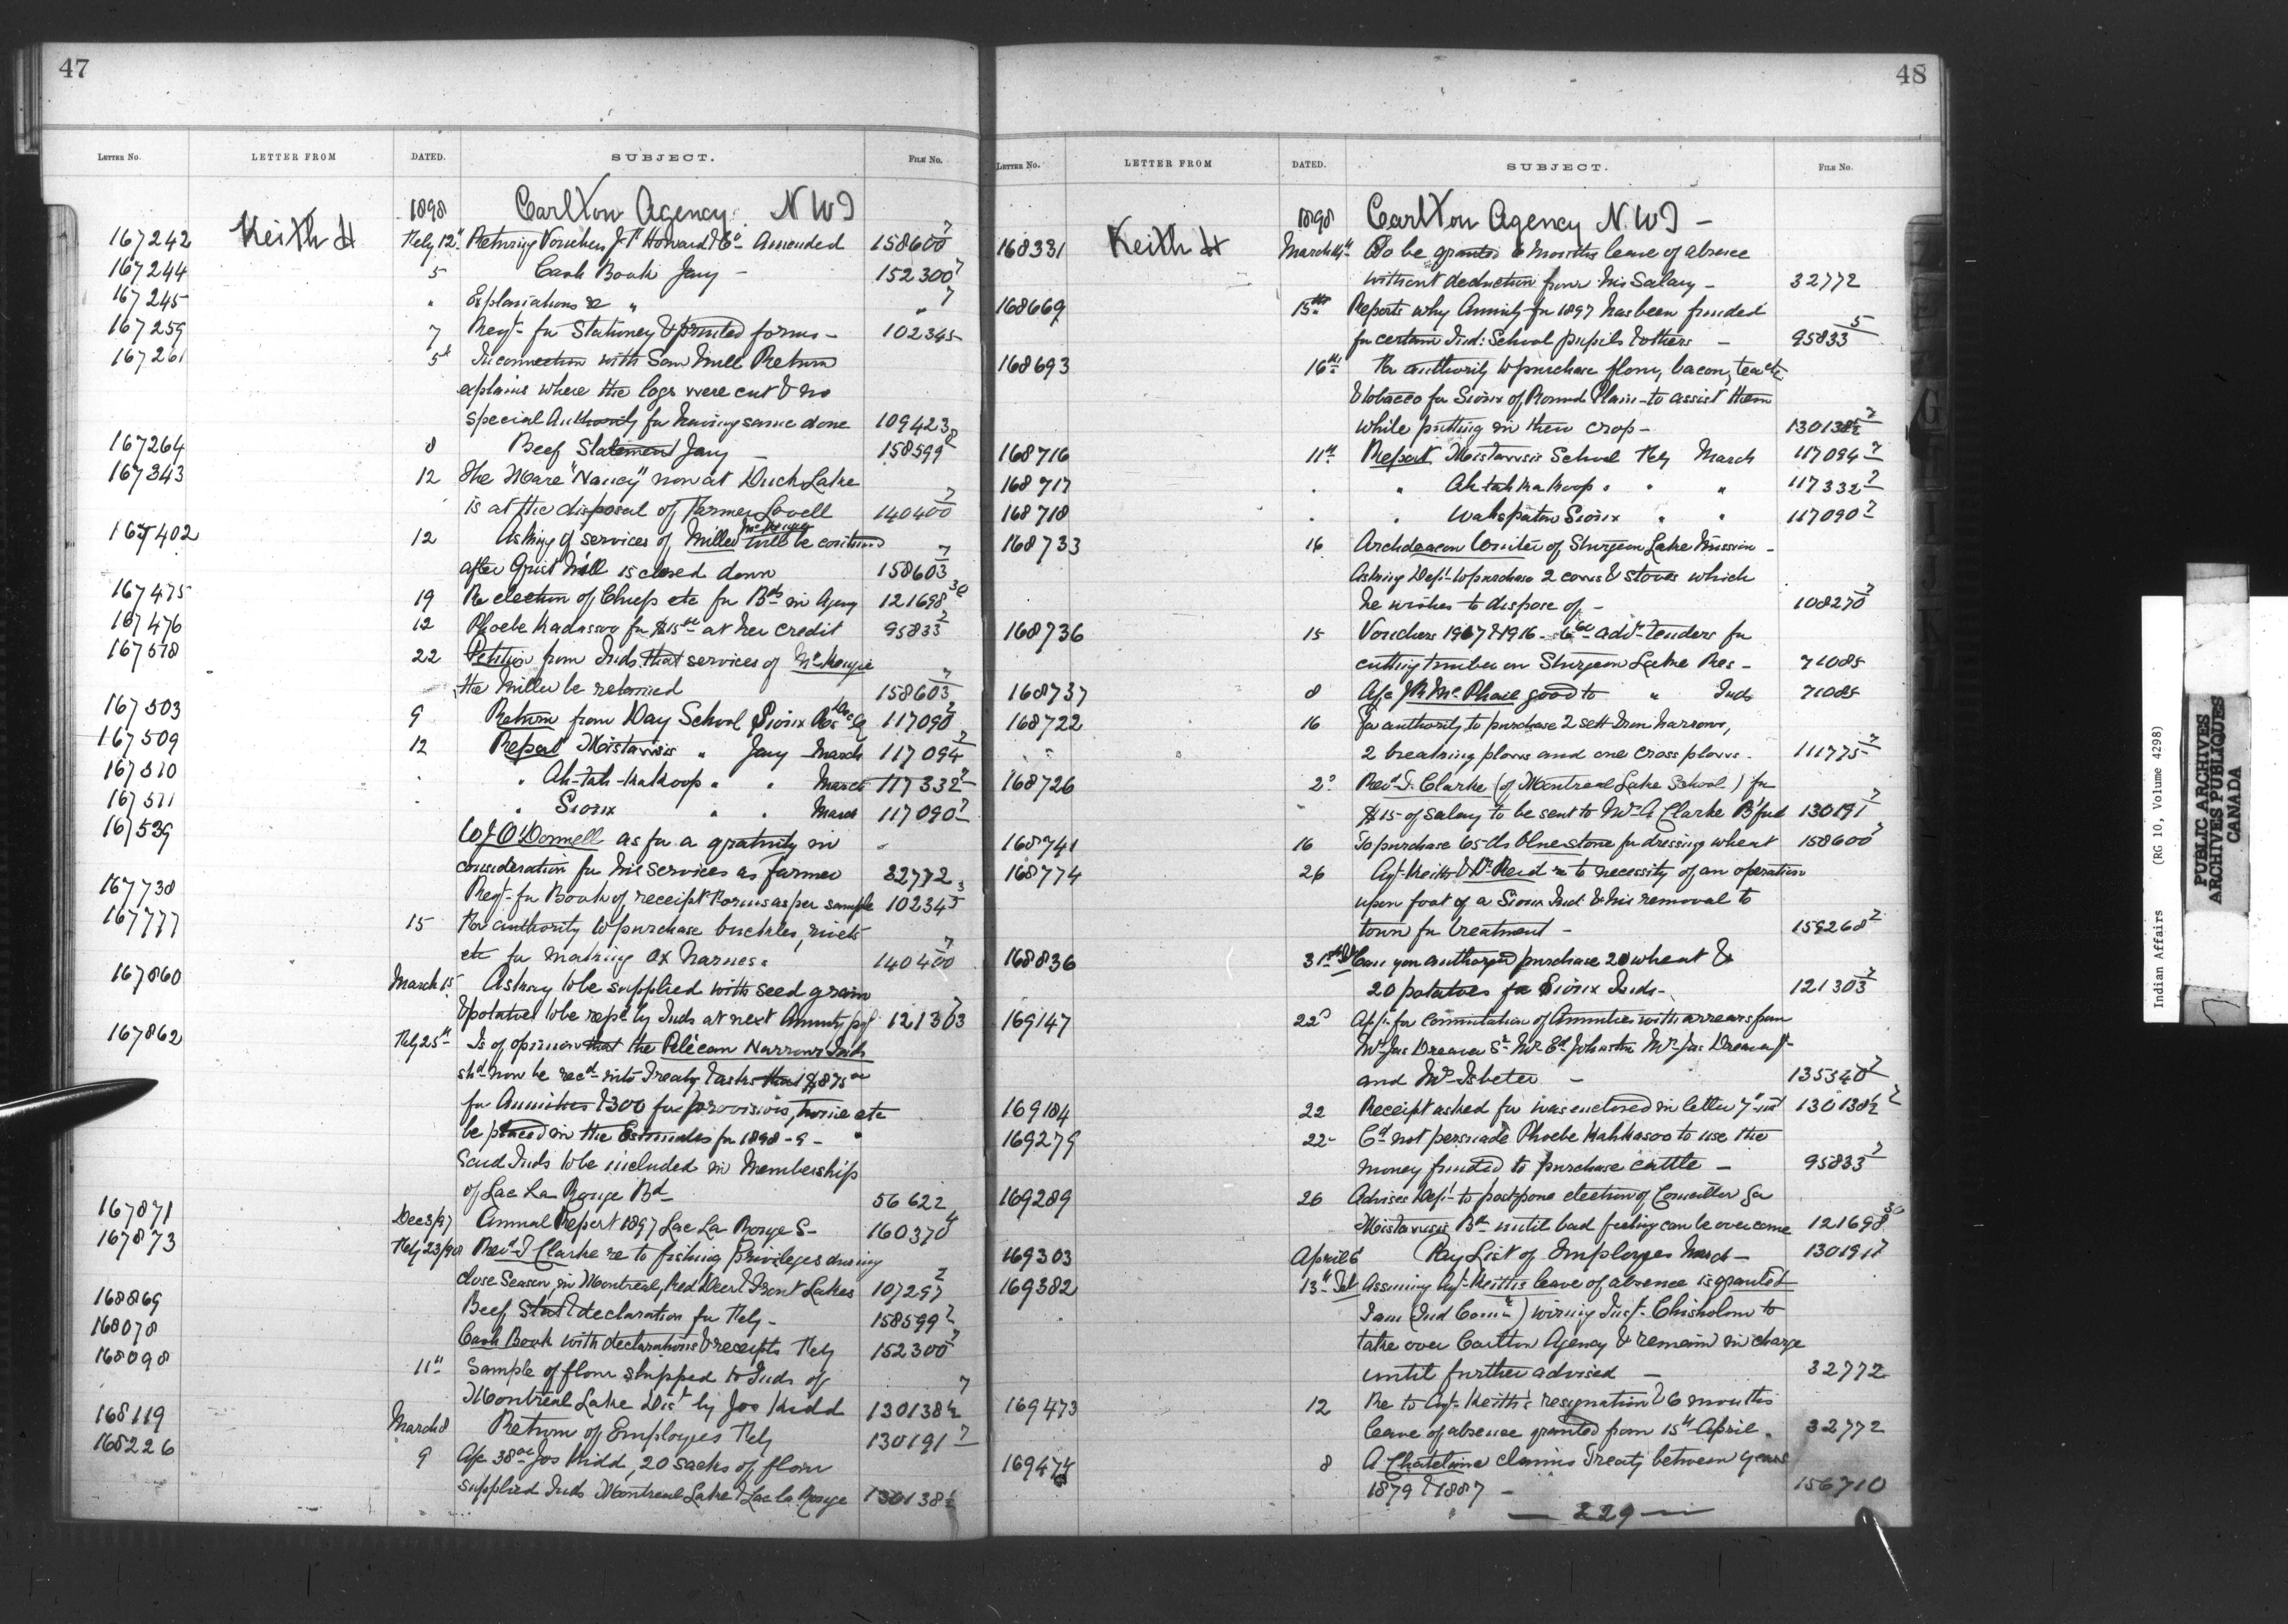 47
LETTER No. LETTER FROM DATED. SUBJECT. FILE No.
1898 Carlton Agency N W T
167242 Keith H Feby 12" Returning Vouchers J. P. Howard & Co Amended 158600 7
167244 5 Cash Book Jany - 152300 7
167245 " Explanations re " " 7
167259 7 Reqt. for Stationery & printed forms - 102345
167261 5" In connection with Saw Mill Return
explains where the logs were cut & no
special Authority for having same done 109423
167264 8 Beef Statement Jany - 158599 2
167343 12 The Mare "Nancy" now at Duck Lake
is at the disposal of Farmer Lovell 140400 7
167402 12 Asking if services of Miller McKenzie will be continued
after Grist Mill is closed down 158603 7
167475 19 Re election of Chiefs etc for Bds in Agency 121698 30
167476 12 Phoebe Kadassoo for $15 00 at her credit 95833 2
167518 22 Petition from Inds. that services of McKenzie
the Miller be retained 158603 7
167503 9 Return from Day School Sioux Res Dec Q 117090 2
167509 12 Report Mistawasis " Jany March 117094 2
167510 " " Ah-tah-kakoop " " March 117332 2
167511 " Sioux " " March 117090 2
167539 W J O'Donnell as for a gratuity in
consideration for his services as farmer 32772
167738 Reqt. for Book of receipt Forms as per sample 102345 3
167777 15 For authority to purchase buckles, rivets
etc for making ox harness 140400 7
167860 March 15 Asking to be supplied with seed grain
& potatoes to be repd by Inds at next Annuity pay 121303 7
167862 Feby 25" Is of opinion that the Pelican Narrows Inds
shd. now be recd. into Treaty & asks that $875 00
for Annuities & 300 for provisions, twine etc
be placed in the Estimates for 1898-9 -
Said Inds to be included in Membership
of Lac La Ronge Bd 56622
167871 Dec 3/97 Annual Report 1897 Lac La Ronge S- 160370 4
167873 Feby 23/98 Revd J Clarke re to fishing privileges during
close Season, in Montreal, Red Deer & Trout Lakes 107297 2
168869 Beef Stat & declaration for Feby - 158599 2
168078 Cash Book with declarations & receipts Feby 152300 7
168098 11" Sample of flour shipped to Inds of
Montreal Lake Dist by Jos Kidd 130138½ 7
168119 March 8 Return of Employes Feby 130191 7
168226 9 A/c 38 00 Jos Kidd, 20 sacks of flour
supplied Inds Montreal Lake & Lac la Ronge 130138½
48
LETTER No. LETTER FROM DATED. SUBJECT. FILE No.
1898 Carlton Agency N. W T -
168331 Keith H March 14" To be granted 6 months leave of absence
without deduction from his Salary - 32772
168669 15th Reports why Annuity for 1897 has been funded
for certain Ind: School pupils & others - 95833 5
168693 16th For authority to purchase flour, bacon, tea etc
& tobacco for Sioux of Round Plain - to assist them
while putting in their crop - 130138½ 2
168716 11" Report Mistawasis School Feby March 117094 2
168717 " " Ah tah ka koop " " " 117332 2
168718 " " Wahspaton Sioux " " 117090 2
168733 16 Archdeacon Winter of Sturgeon Lake Mission -
Asking Dept. to purchase 2 cows & stoves which
he wishes to dispose of - 108270 2
168736 15 Vouchers 1907 & 1916 - 6 60 advt. tenders for
cutting timber on Sturgeon Lake Res - 71085
168737 8 A/c J R McPhail good to " Inds 71085
168722 16 For authority to purchase 2 sett Iron harrows,
2 breaking plows and one cross plow. 111775 2
168726 2" Revd J. Clarke (of Montreal Lake School) for
$15- of salary to be sent to Mr A Clarke B'ford 130191 2
168741 16 To purchase 65 lbs Blue stone for dressing wheat 158600 7
168774 26 Agt. Keith & Dr Reid re to necessity of an operation
upon foot of a Sioux Ind & his removal to
town for treatment - 159268 2
168836 31st Tel Can you authorize purchase 20 wheat &
20 potatoes for Sioux Inds - 121303 2
169147 22d Appn. for commutation of Annuities with arrears from
Mrs Jas Dreaver Sr Mrs Ed Johnston Mrs Jas Dreaver Jr
and Mrs Isbeter - 135340 2
169184 22 Receipt asked for was enclosed in letter 7" inst 130138½ 2
169279 22- Cd not persuade Phoebe Kahkasoo to use the
money funded to purchase cattle - 95833 2
169289 26 Advises Dept. to postpone election of Councillor for
Mistawasis Bd until bad feeling can be overcome 121698 30
169303 April 6 Pay List of Employes March - 130191 7
169382 13" Tel Assuming Agt. Keith's leave of absence is granted
I am (Ind Comr) wiring Insp. Chisholm to
take over Carlton Agency & remain in charge
until further advised - 32772
169473 12 Re to Agt. Keith's resignation & 6 months
leave of absence granted from 15th April. 32772
169474 8 A Chatelaine claims Treaty between years
1879 & 1887 - 156710
— 229 —
Indian Affairs (RG 10, Volume 4298)
PUBLIC ARCHIVES
ARCHIVES PUBLIQUES
CANADA